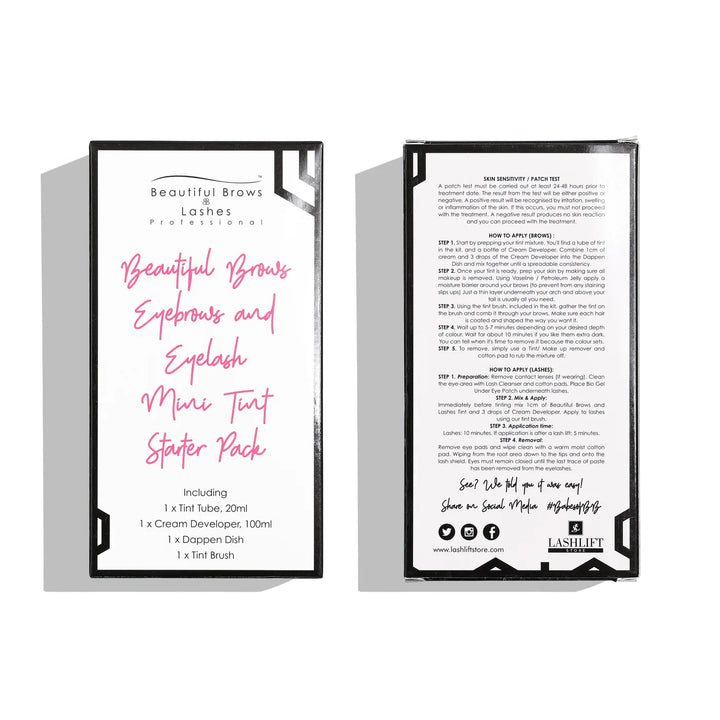 Beautiful Brows ™
BB
Lashes
Professional
Beautiful Brows
Eyebrows and
Eyelash
Mini Tint
Starter Pack
Including
1 x Tint Tube, 20ml
1 x Cream Developer, 100ml
1 x Dappen Dish
1 x Tint Brush
SKIN SENSITIVITY / PATCH TEST
A patch test must be carried out at least 24-48 hours prior to
treatment date. The result will be from the test either positive or
negative. A positive result will be recognised by irritation, swelling
or inflammation of the skin. If this occurs, you must not proceed
with the treatment. A negative result produces no skin reaction
and you can proceed with the treatment.
HOW TO APPLY (BROWS) :
STEP 1. Start by prepping your tint mixture. You'll find a tube of tint
in the kit, and a bottle of Cream Developer. Combine 1cm of
cream and 3 drops of the Cream Developer into the Dappen
Dish and mix together until a spreadable consistency.
STEP 2. Once your tint is ready, prep your skin by making sure all
makeup is removed. Using Vaseline / Petroleum Jelly apply a
moisture barrier around your brows (to prevent from any staining
slips ups) Just a thin layer underneath your arch and above your
tail is usually all you need.
STEP 3. Using the tint brush, included in the kit, gather the tint on
the brush and comb it through your brows. Make sure each hair
is coated and shaped the way you want it.
STEP 4. Wait up to 5-7 minutes depending on your desired depth
of colour. Wait for about 10 minutes if you like them extra dark.
You can tell when it's time to remove it because the colour sets.
STEP 5. To remove, simply use a Tint/ Make up remover and
cotton pad to rub the mixture off.
HOW TO APPLY (LASHES):
STEP 1. Preparation: Remove contact lenses (if wearing). Clean
the eye-area with Lash Cleanser and cotton pads. Place Bio Gel
Under Eye Patch underneath lashes.
STEP 2. Mix & Apply:
Immediately before tinting mix 1cm of Beautiful Brows and
Lashes Tint and 3 drops of Cream Developer. Apply to lashes
using our tint brush.
STEP 3. Application time:
Lashes: 10 minutes. If application is after a lash lift: 5 minutes.
STEP 4. Removal:
Remove eye pads and wipe clean with a warm moist cotton
pad. Wiping from the root area down to the tips and onto the
lash shield. Eyes must remain closed until the last trace of paste
has been removed from the eyelashes.
See? We told you it was easy!
Share on Social Media #BabesofBB
www.lashliftstore.com
LASHLIFT
STORE